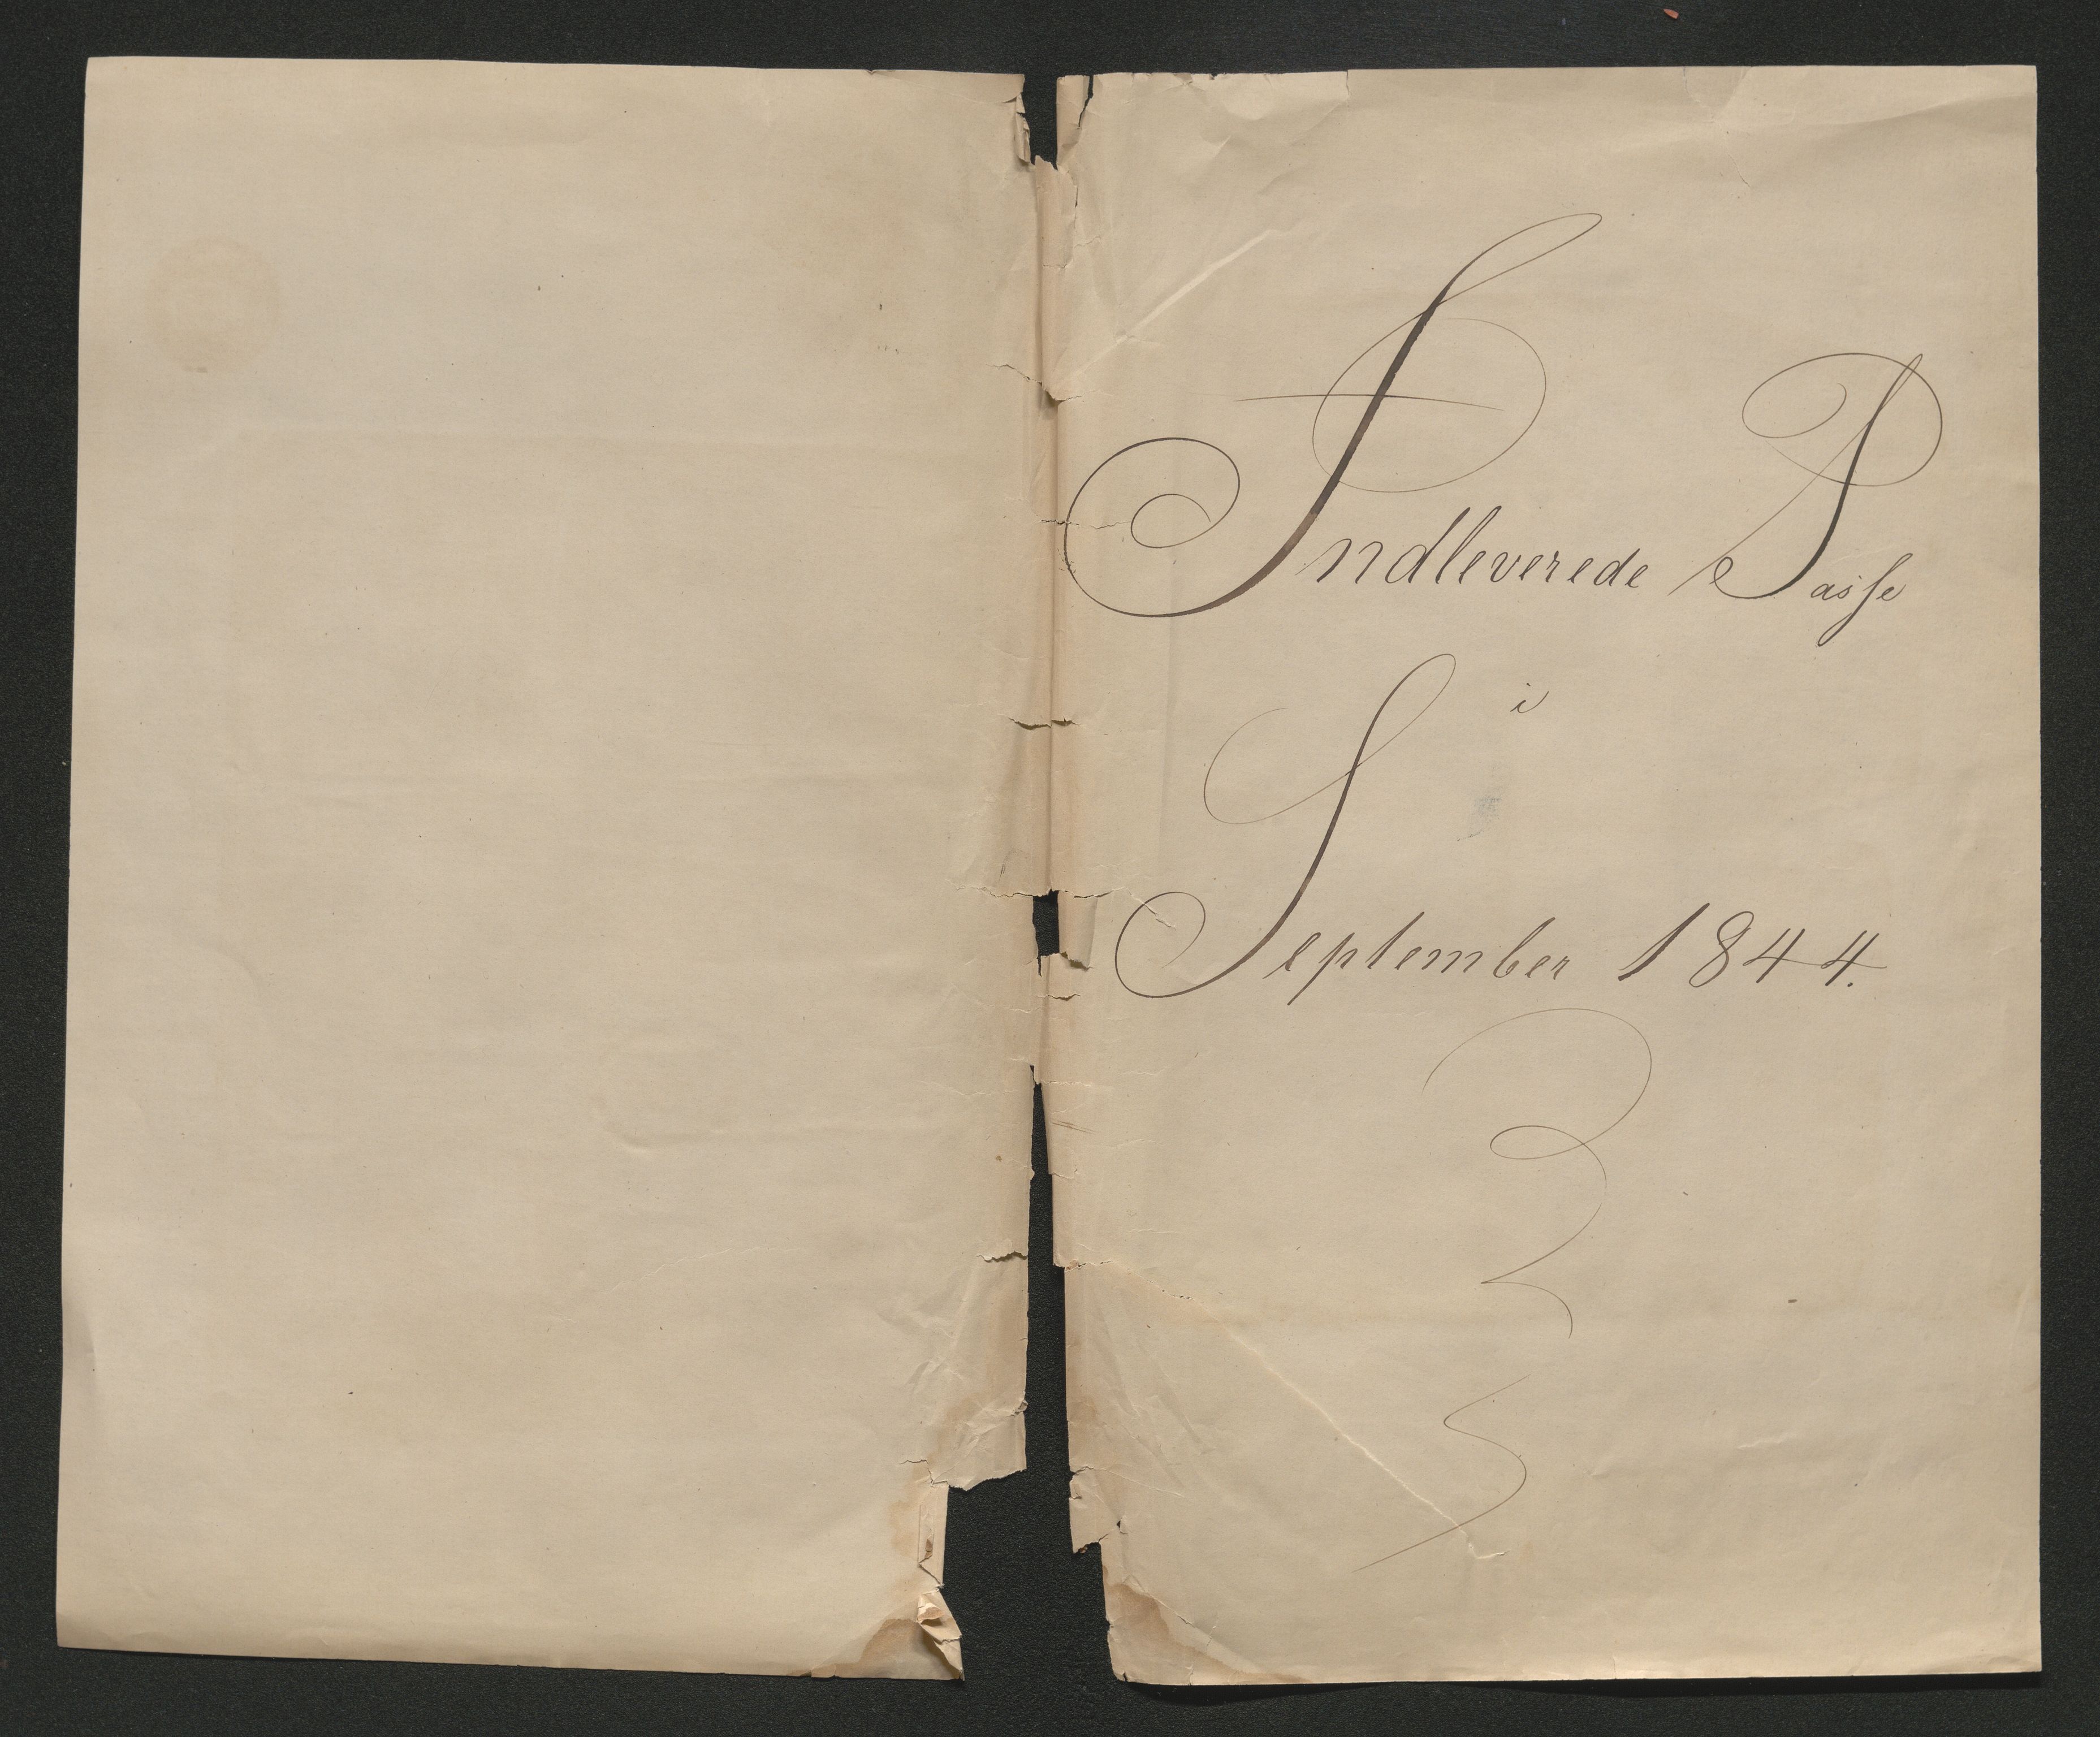 Indleverede Passe
i
September 1844.